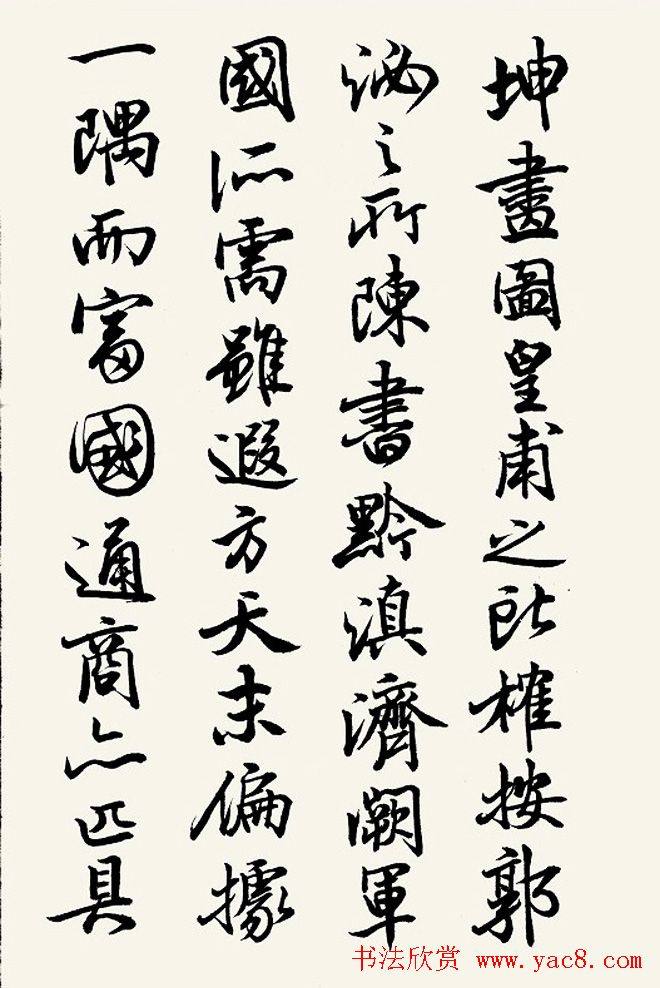 坤畫圖皇甫之所榷按郭
泌之所陳書黔滇濟闕軍
國所需雖遐方天末偏據
一隅而富國通商亦匹具
书法欣赏 www.yac8.com